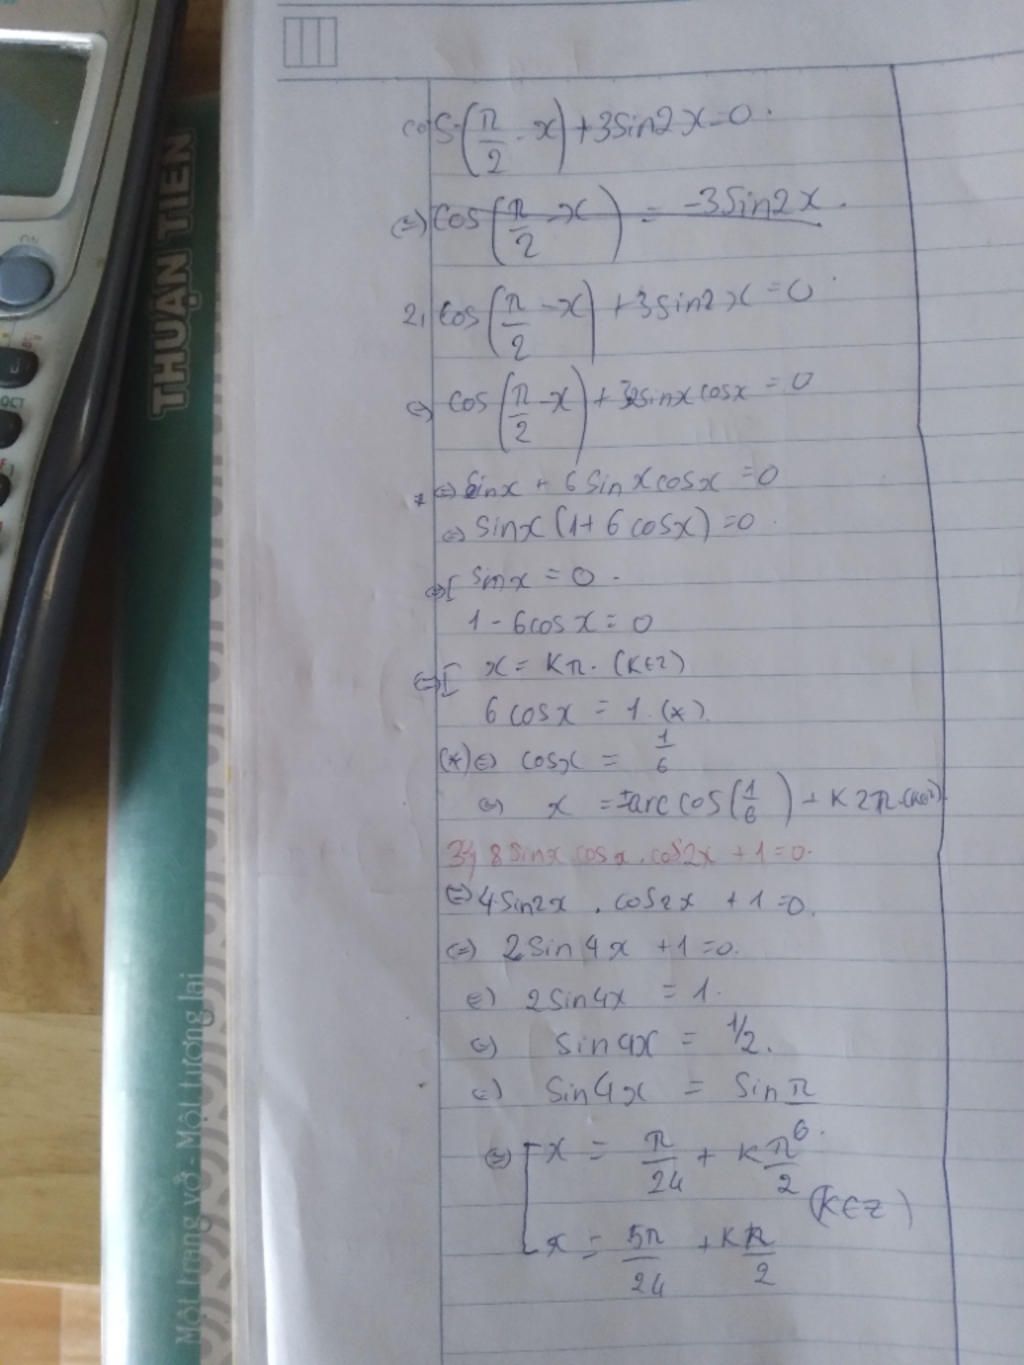 cos(π/2 - x) + 3sin2x = 0.
(=) cos(π/2 - x) = -3sin2x.
2, cos(π/2 - x) + 3sin2x = 0
(=) cos(π/2 - x) + 3.2sinxcosx = 0
(=) sinx + 6sinxcosx = 0
(=) sinx(1 + 6cosx) = 0.
(=) [ sinx = 0.
1 - 6cosx = 0
(=) [ x = Kπ. (K∈Z)
6cosx = 1. (*).
(*) (=) cosx = 1/6
(=) x = ±arccos(1/6) + K2π. (K∈Z)
3, 8sinx cosx. cos2x + 1 = 0.
(=) 4sin2x . cos2x + 1 = 0.
(=) 2Sin4x + 1 = 0.
(=) 2Sin4x = 1.
(=) sin4x = 1/2.
(=) Sin4x = Sin π/6.
(=) [ x = π/24 + Kπ/2
(K∈Z)
x = 5π/24 + Kπ/2
THUẬN TIẾN
Một trang vở - Một tương lai
ON